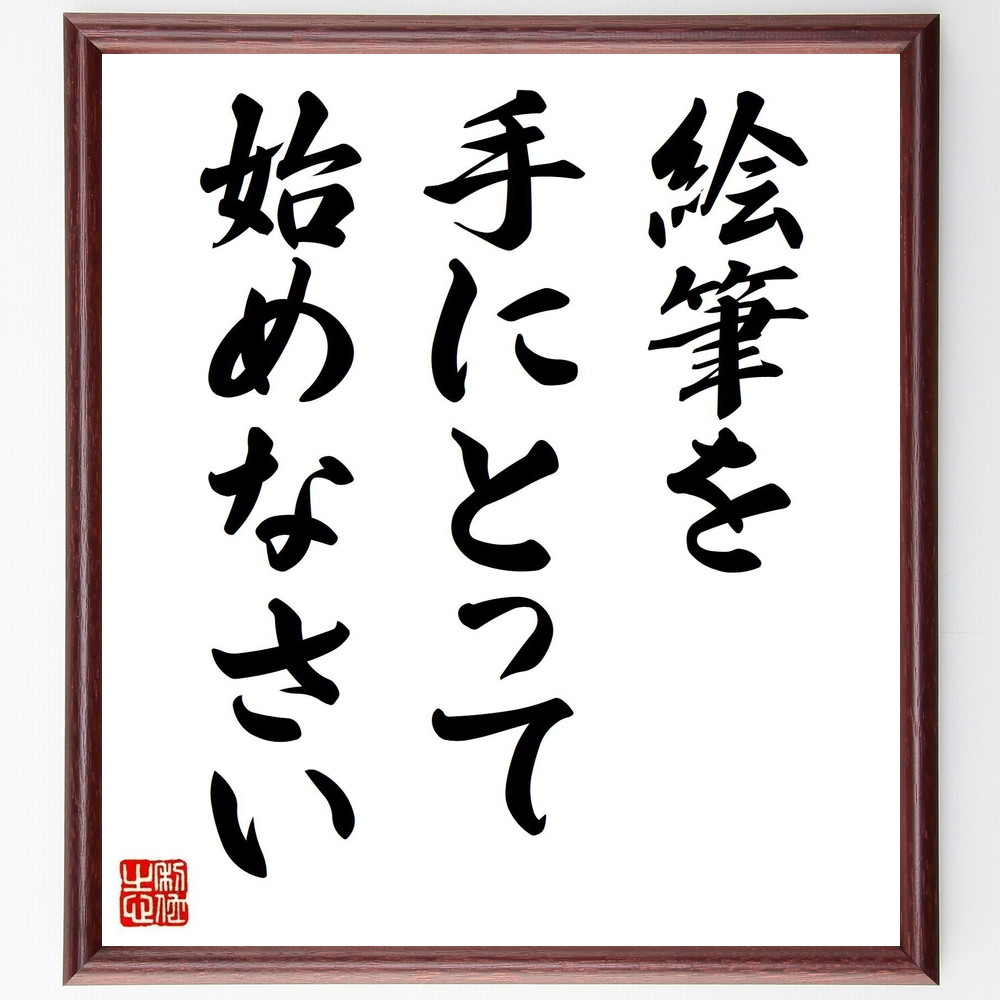 絵筆を
手にとって
始めなさい